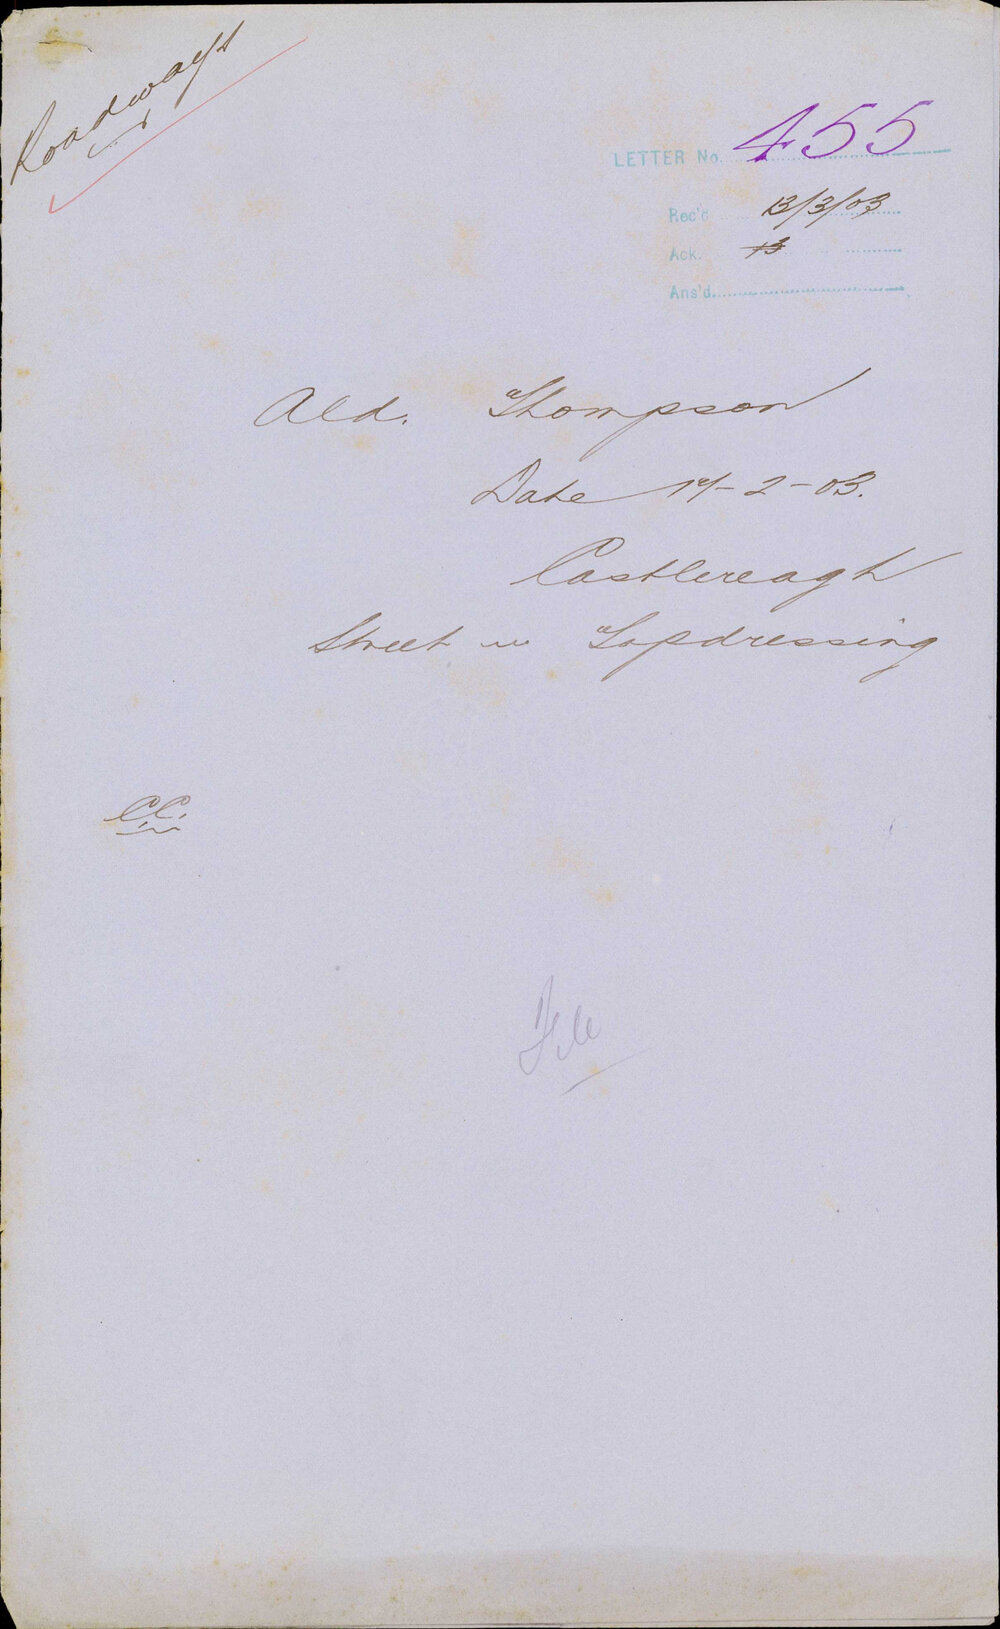 Roadways
LETTER No. 455
Rec'd 13/3/03
Ack. 13
Ans'd
Ald. Thompson
Date 17-2-03.
Castlereagh
Street re Topdressing
C.C.
File